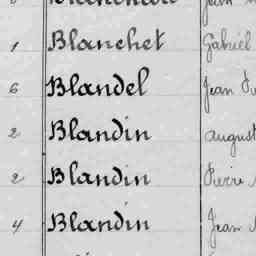 1 Blanchet Gabriel
6 Blandel Jean
2 Blandin august
2 Blandin Pierre
4 Blandin Jean